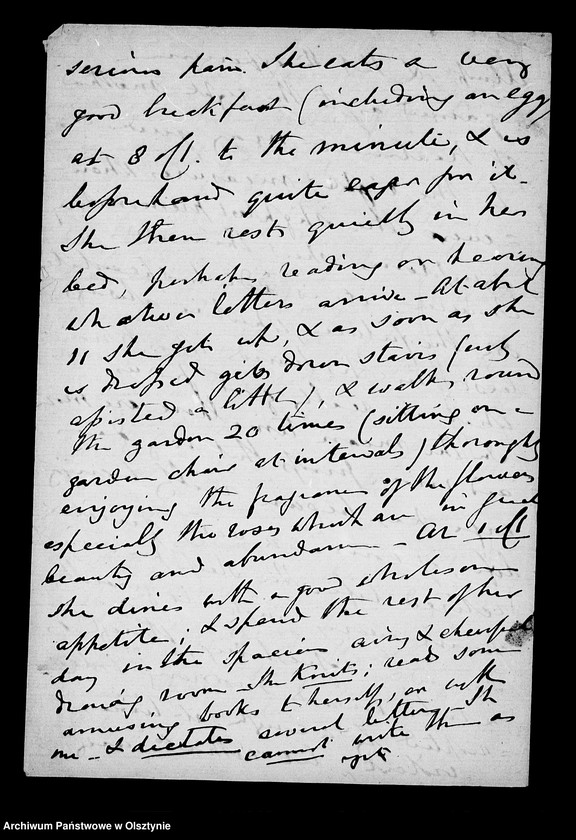 serious pain. She eats a very
good breakfast (including an egg)
at 8 o'cl. to the minute, & is
beforehand quite eager for it.
She then rests quietly in her
bed, perhaps reading or hearing
whatever letters arrive - At abt
11 she gets up, & as soon as she
is dressed gets down stairs (only
assisted a little), & walks round
the garden 20 times (sitting on a
garden chair at intervals) thoroughly
enjoying the fragrance of the flowers
especially the roses which are in great
beauty and abundance - At 1 o'cl
she dines with a good wholesome
appetite; & spends the rest of her
day in the spacious airy & cheerful
drawing room - She knits; reads some
amusing books to herself, or with
me - & dictates several letters. She
cannot write them as
yet.
Archiwum Państwowe w Olsztynie